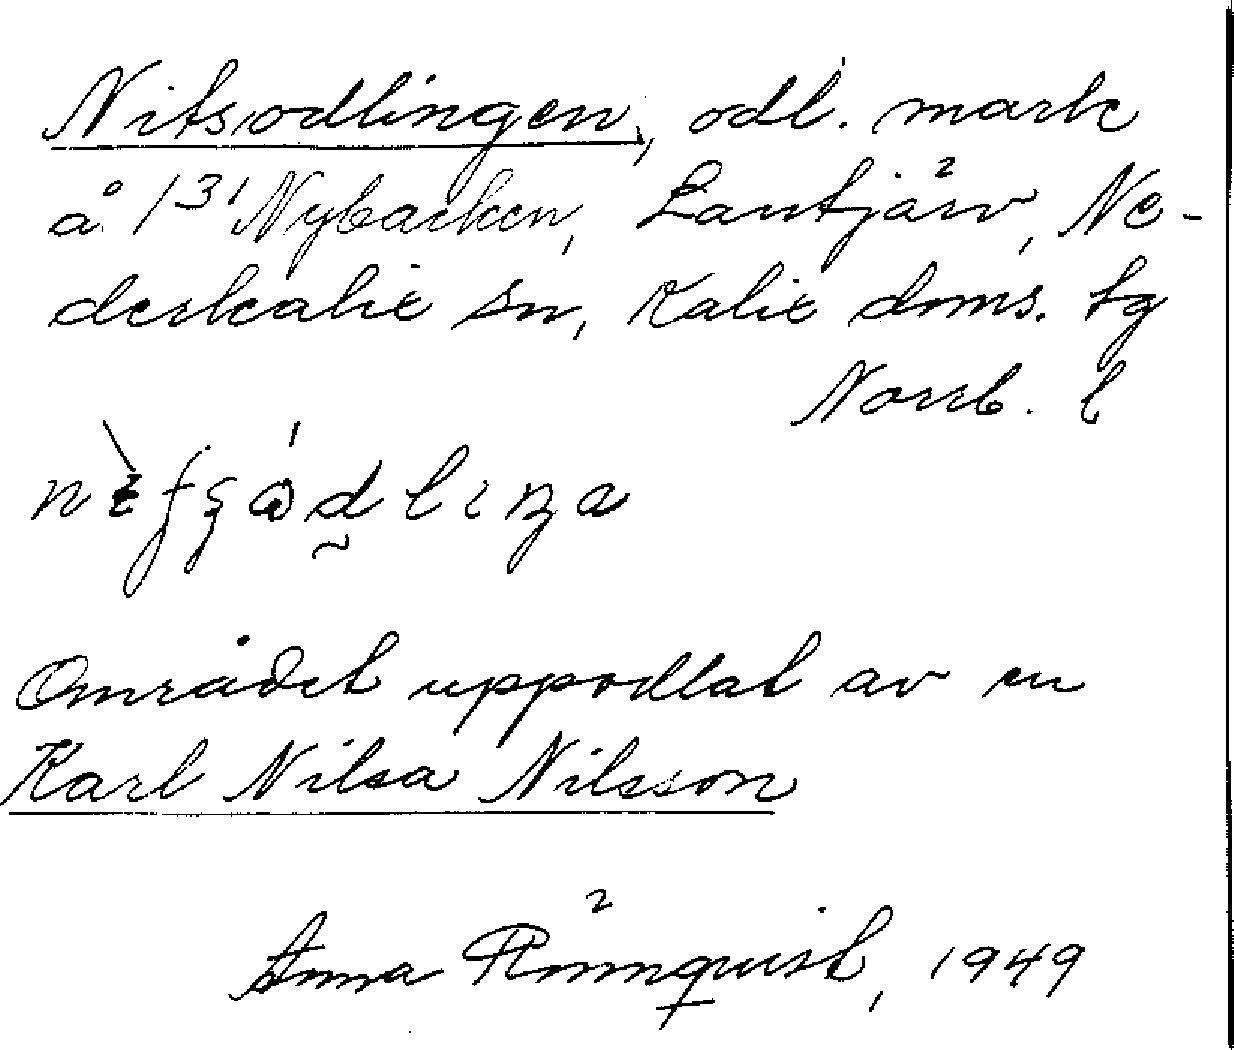 Nitsodlingen, odl. mark
å 1³¹ Nybacken, Lantjärv, Ne-
derkalix sn, Kalix doms. tg
Norrb. l
Området uppodlat av en
Karl Nilsa Nilsson
Anna Rönnquist, 1949